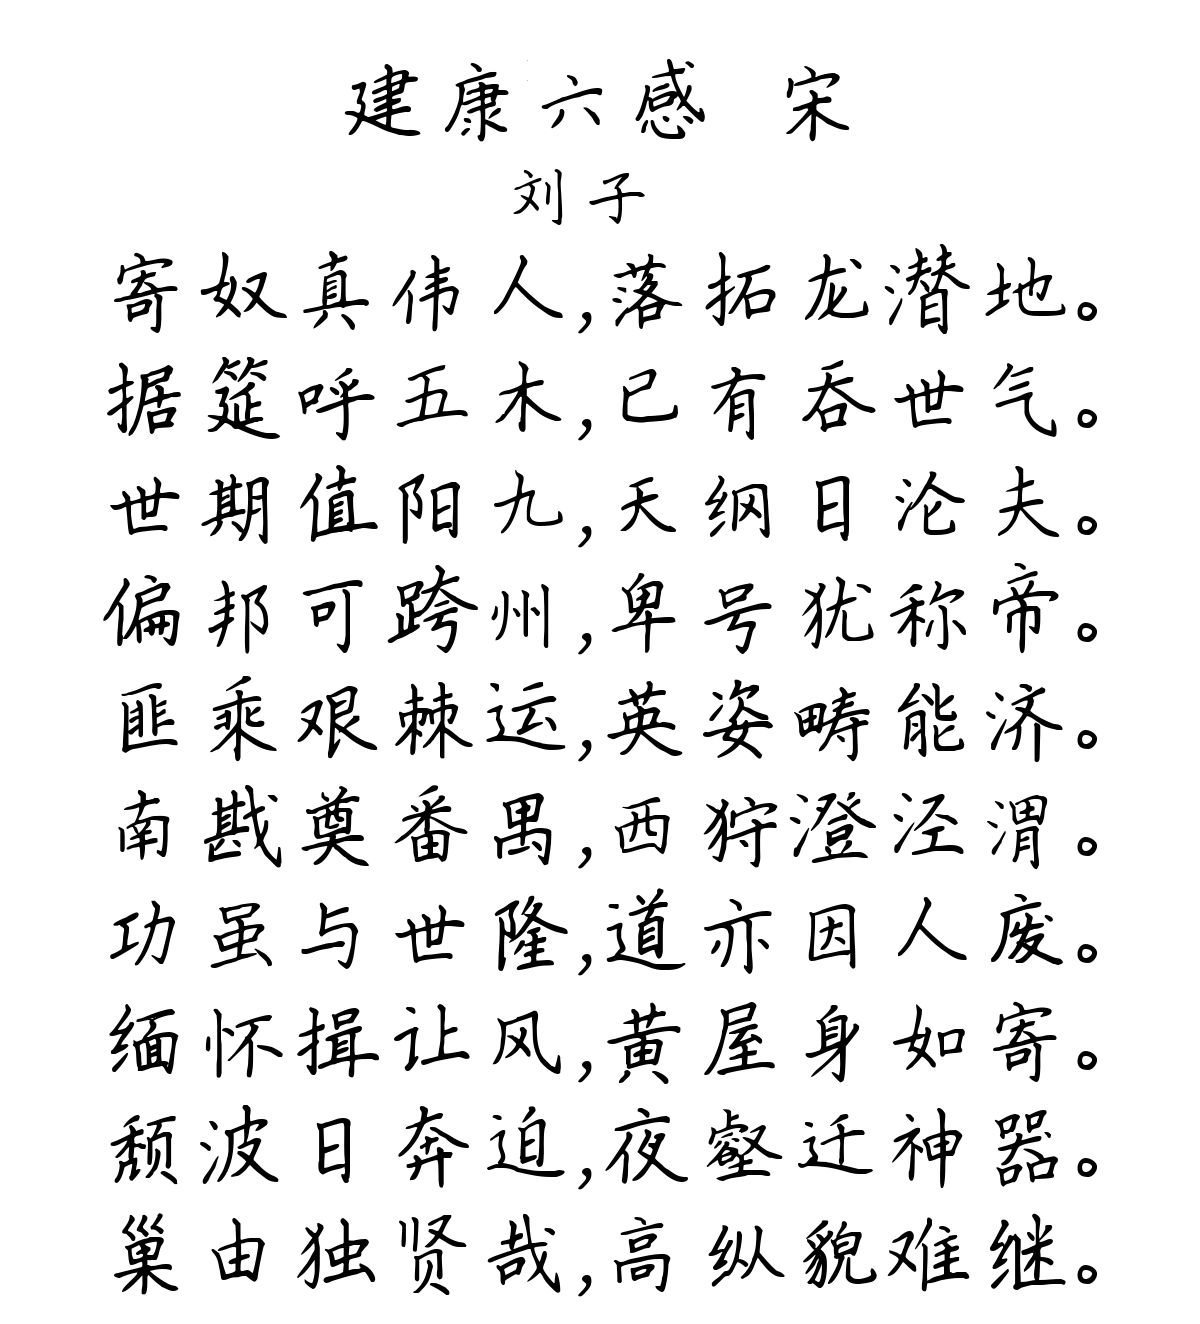 建康六感 宋
刘子
寄奴真伟人,落拓龙潜地。
据筵呼五木,已有吞世气。
世期值阳九,天纲日沦夫。
偏邦可跨州,卑号犹称帝。
匪乘艰棘运,英姿畴能济。
南戡奠番禺,西狩澄泾渭。
功虽与世隆,道亦因人废。
缅怀揖让风,黄屋身如寄。
颓波日奔迫,夜壑迁神器。
巢由独贤哉,高纵貌难继。